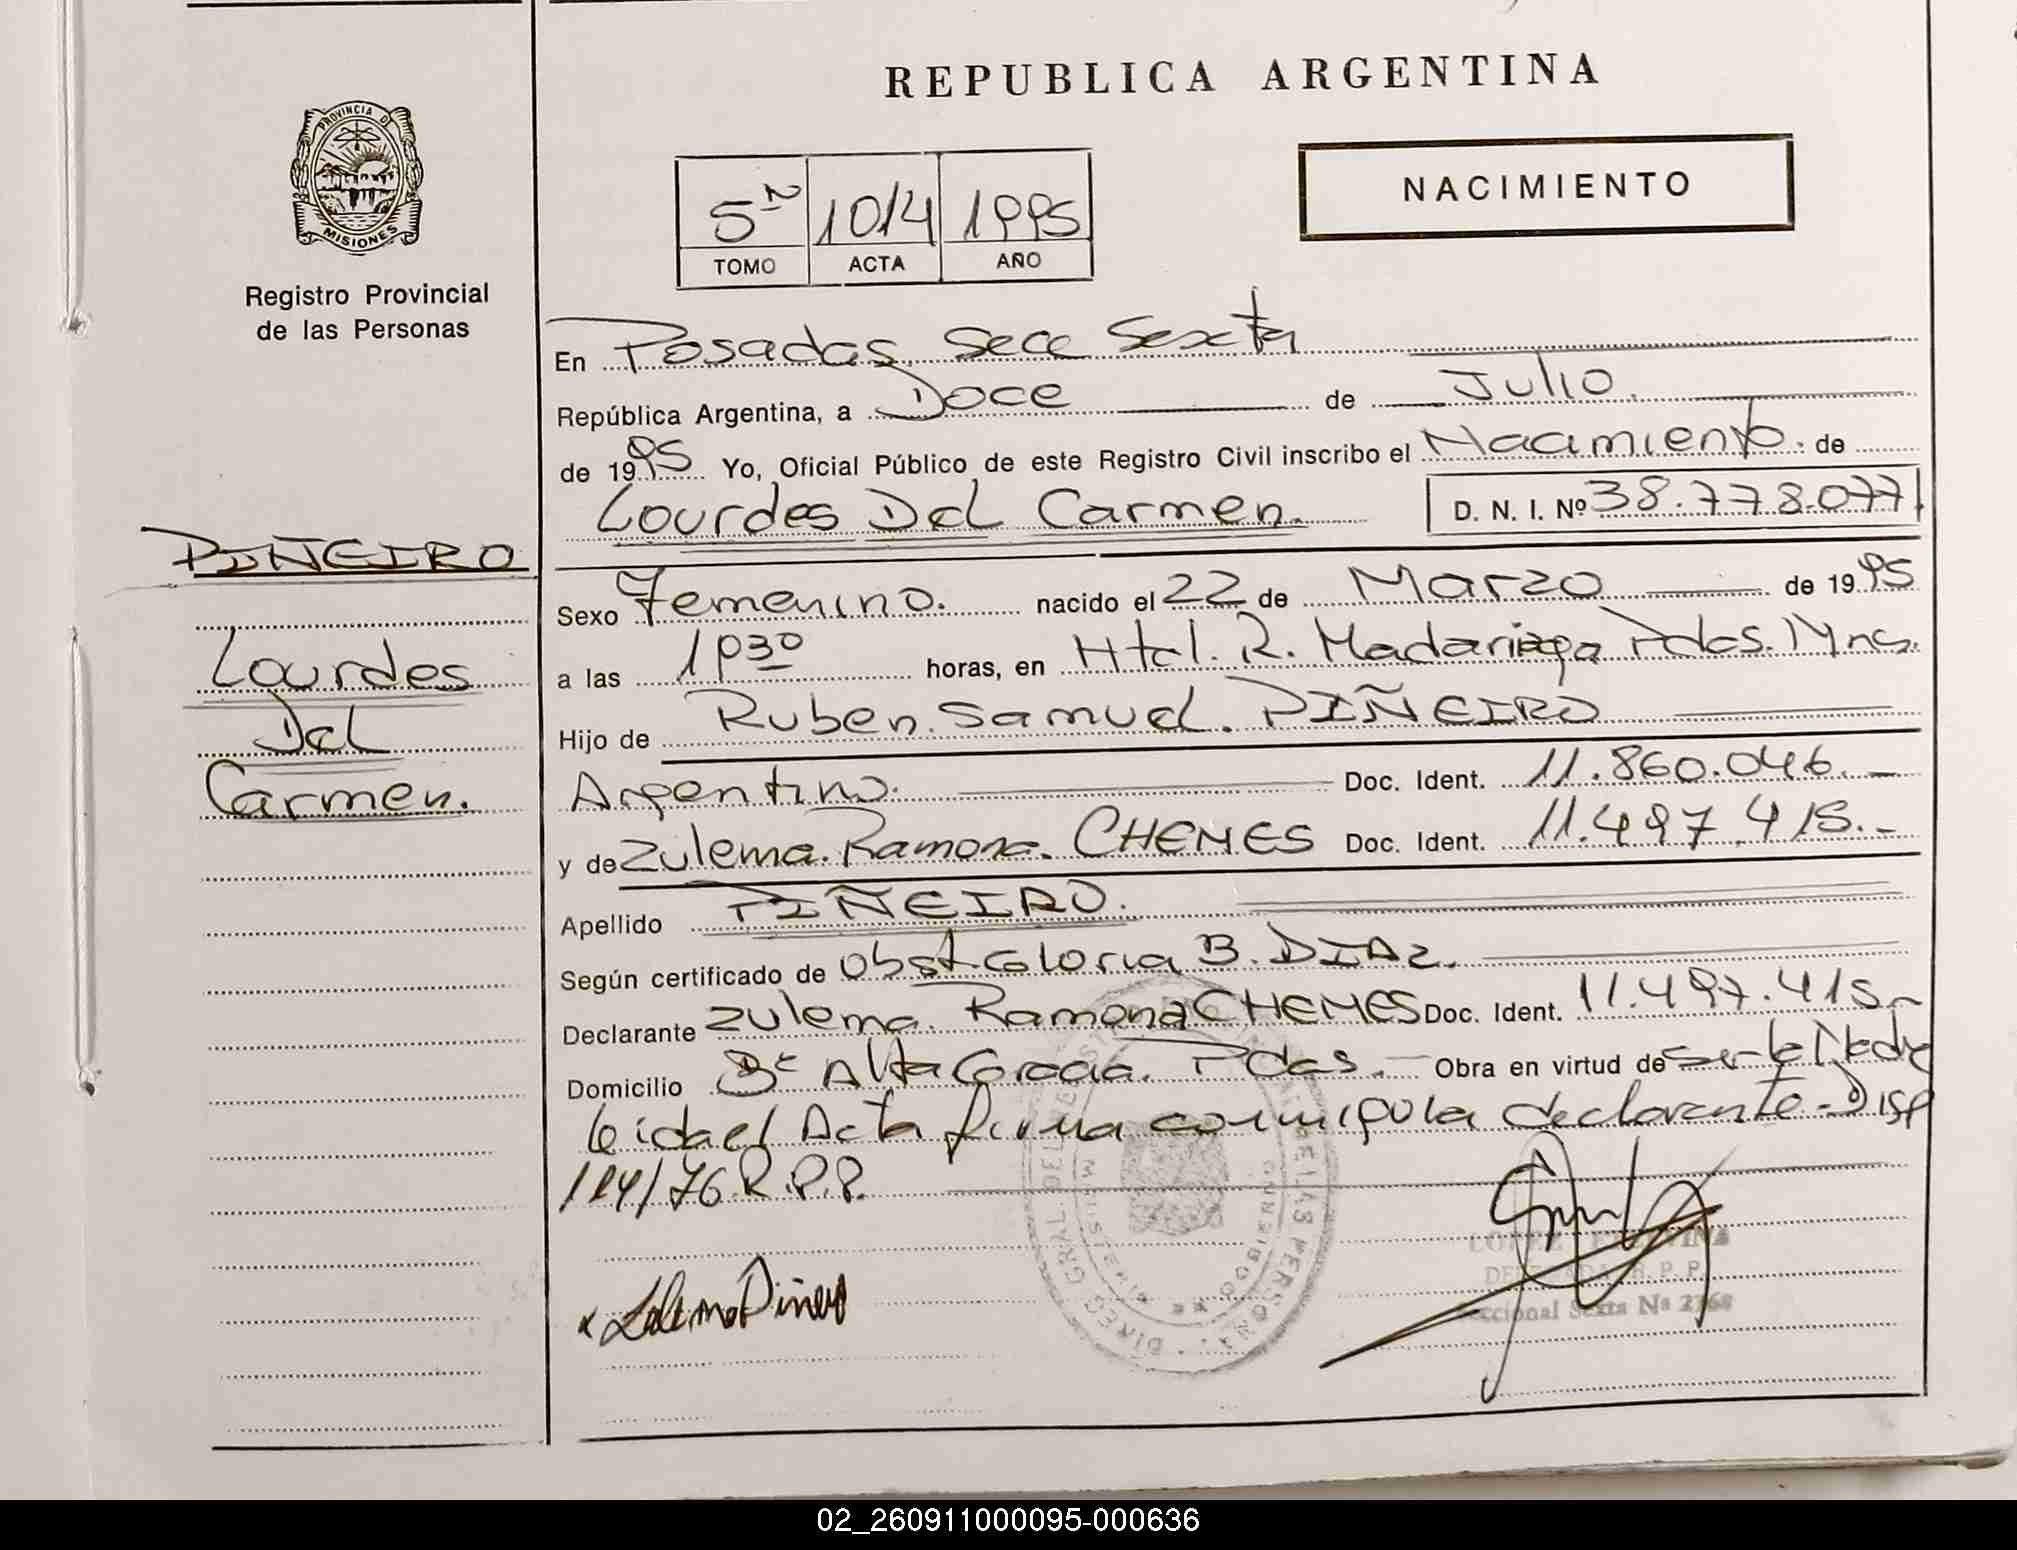 REPUBLICA ARGENTINA
PROVINCIA D
MISIONES
Registro Provincial
de las Personas
NACIMIENTO
5 1014 1995
TOMO ACTA AÑO
En Posadas, Secc Sexta
República Argentina, a Doce de Julio.
de 1995 Yo, Oficial Público de este Registro Civil inscribo el Nacimiento. de
Lourdes Del Carmen. D. N. I. Nº 38.778.077
PIÑEIRO
Lourdes
Del
Carmen.
Sexo Femenino. nacido el 22 de Marzo de 1995
a las 1930 horas, en Htal. R. Madariaga Pdas. Mnes.
Hijo de Ruben Samuel. PIÑEIRO
Argentino. Doc. Ident. 11.860.046.-
y de Zulema. Ramona. CHEMES Doc. Ident. 11.497.415.-
Apellido PIÑEIRO.
Según certificado de Obst. Gloria B. DIAZ.
Declarante Zulema. Ramona CHEMES Doc. Ident. 11.497.415.-
Domicilio Bº Alta Gracia. Pdas.- Obra en virtud de ser la Madre
leida el Acta firma conmigo la declarante-Disp
114/76 R.P.P.
DIREC GRAL. DEL PERSONAS
Seccional Sexta Nº 2368
02_260911000095-000636